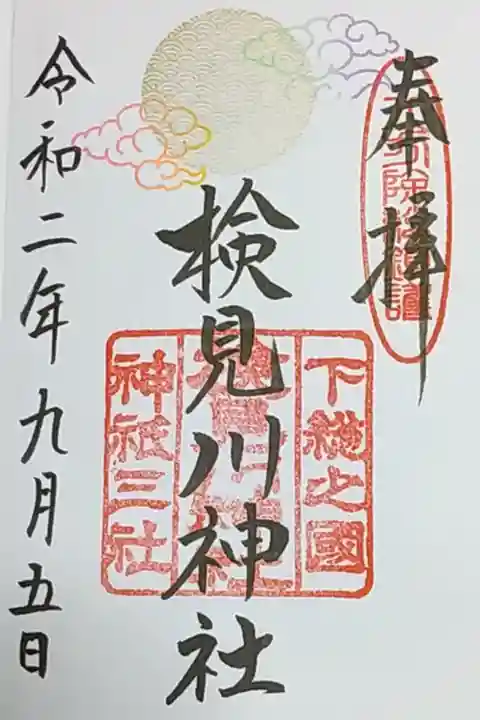 奉拝
下総之國
検見川神社
神祇三社
令和二年九月五日